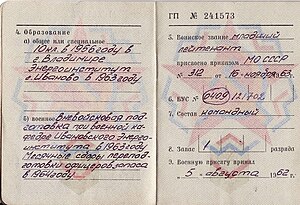 4. Образование
а) общее или специальное
10 кл. в 1956 году в
г. Владимире
Энергоинститут
г. Иваново в 1963 году
б) военное вневойсковая под-
готовка при военной ка-
федре Ивановского Энерго-
института в 1963 году
Месячные сборы перепод-
готовки офицеров запаса
в 1964 году
ГП № 241573
5. Воинское звание младший
лейтенант
присвоено приказом МО СССР
№ 312 от 16 ноября 63.
6. ВУС №
7. Состав командный
8. Запас 1 разряда
9. Военную присягу принял
5 августа 1962 г.